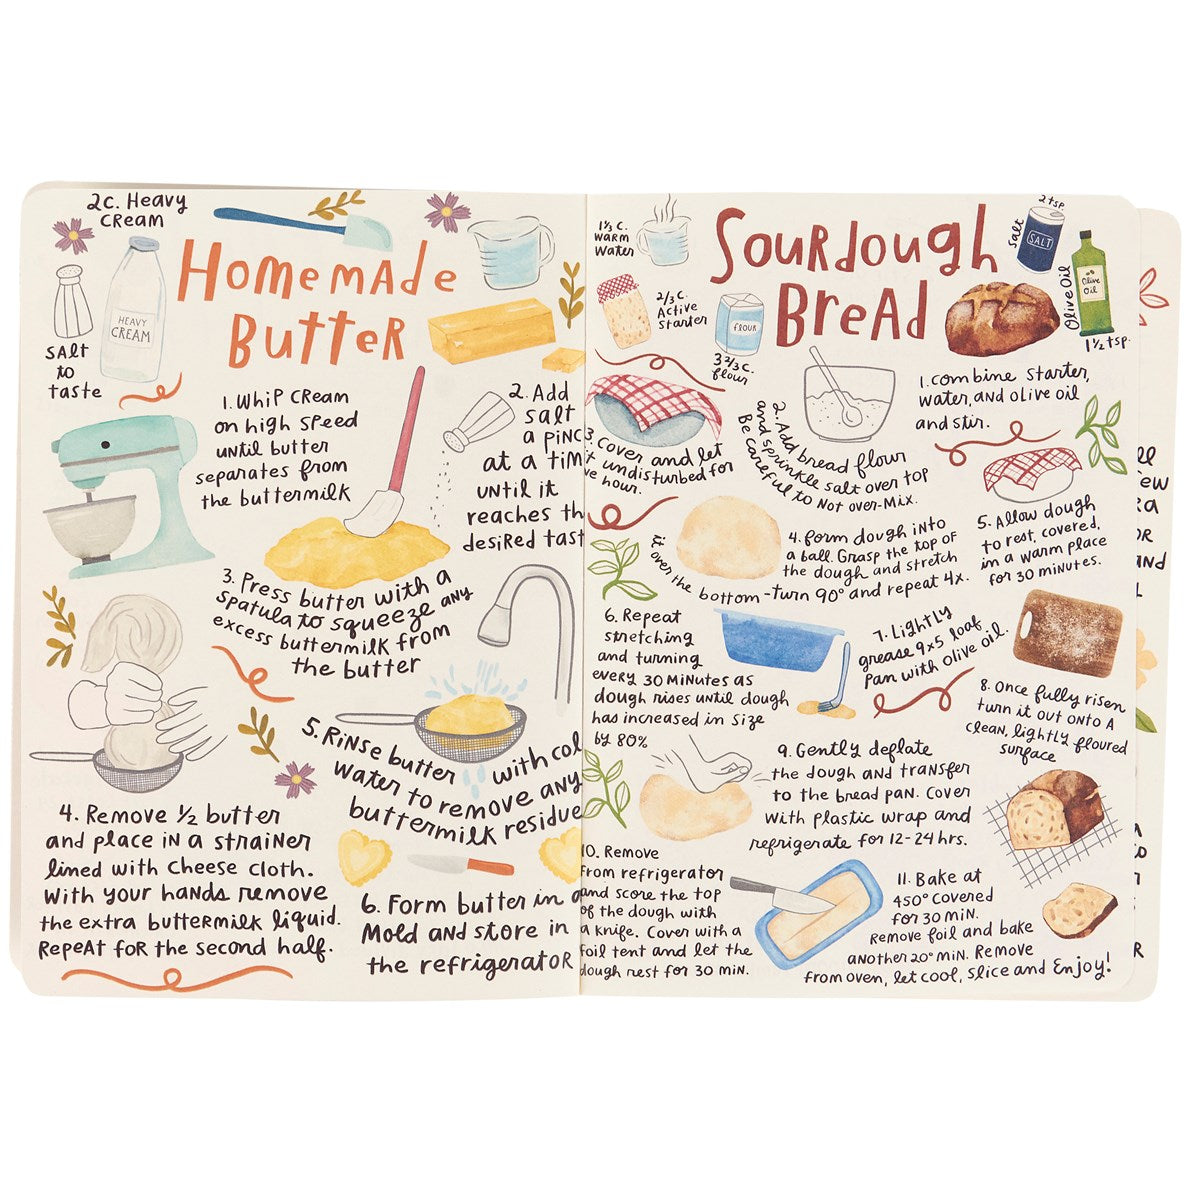 2c. Heavy
CReam
Homemade
Butter
HEAVY
CREAM
Salt
to
taste
1. Whip CReam
on high speed
until butter
separates from
the buttermilk
2. Add
salt
a pinc
at a tim
until it
reaches th
desired tast
3. Press butter with a
spatula to squeeze any
excess buttermilk from
the butter
4. Remove ½ butter
and place in a strainer
lined with cheese cloth.
With your hands remove
the extra buttermilk liquid.
Repeat for the second half.
5. Rinse butter with col
water to remove any
buttermilk residue
6. Form butter in a
Mold and store in
the refrigerator
Sourdough
Bread
1⅓ c.
warm
water
2/3 c.
Active
starter
FLOUR
3 2/3 c.
flour
Salt
2 tsp
SALT
Olive Oil
Olive
Oil
1½ tsp.
1. combine starter,
water, and olive oil
and stir.
2. Add bread flour
and sprinkle salt over top
Be careful to not over-mix.
3. Cover and let
t undisturbed for
e hour.
4. Form dough into
a ball. Grasp the top of
the dough and stretch
it over the bottom - turn 90° and repeat 4x.
5. Allow dough
to rest, covered,
in a warm place
for 30 minutes.
6. Repeat
stretching
and turning
every 30 minutes as
dough rises until dough
has increased in size
by 80%
7. Lightly
grease 9x5 loaf
pan with olive oil.
8. Once fully risen
turn it out onto a
clean, lightly floured
surface
9. Gently deflate
the dough and transfer
to the bread pan. Cover
with plastic wrap and
refrigerate for 12-24 hrs.
10. Remove
from refrigerator
and score the top
of the dough with
a knife. Cover with a
foil tent and let the
dough rest for 30 min.
11. Bake at
450° covered
for 30 min.
Remove foil and bake
another 20° min. Remove
from oven, let cool, slice and Enjoy!